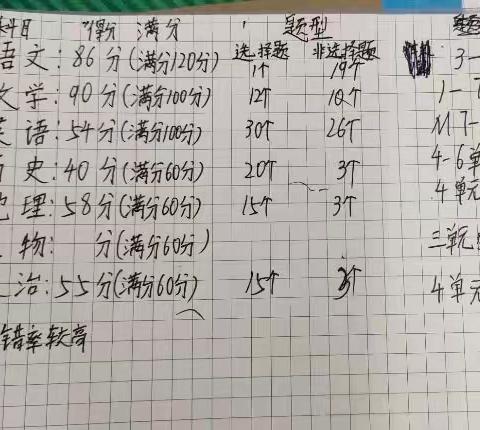 科目 得分 满分 题型
选择题 非选择题
语文:86分(满分120分) 1个 19个 3-
文学:90分(满分100分) 12个 10个 1-
英语:54分(满分100分) 30个 26个 M7-
历史:40分(满分60分) 20个 3个 4-6单
地理:58分(满分60分) 15个 3个 4单元
物: 分(满分60分) 三单元
治:55分(满分60分) 15个 3个 4单元
错率较高